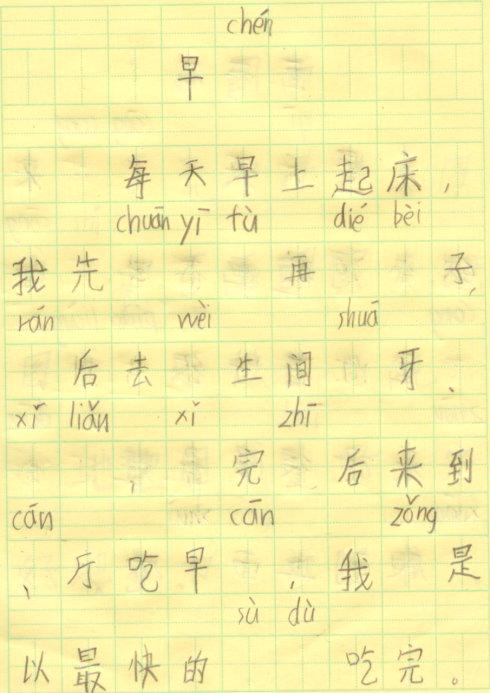 chén
早
每天早上起床，
chuān yī fù dié bèi
我先 再 子，
rán wèi shuā
后去 生间 牙、
xǐ liǎn xǐ zhī
， 完 后来到
cān cān zǒng
、厅吃早 ，我 是
sù dù
以最快的 吃完。